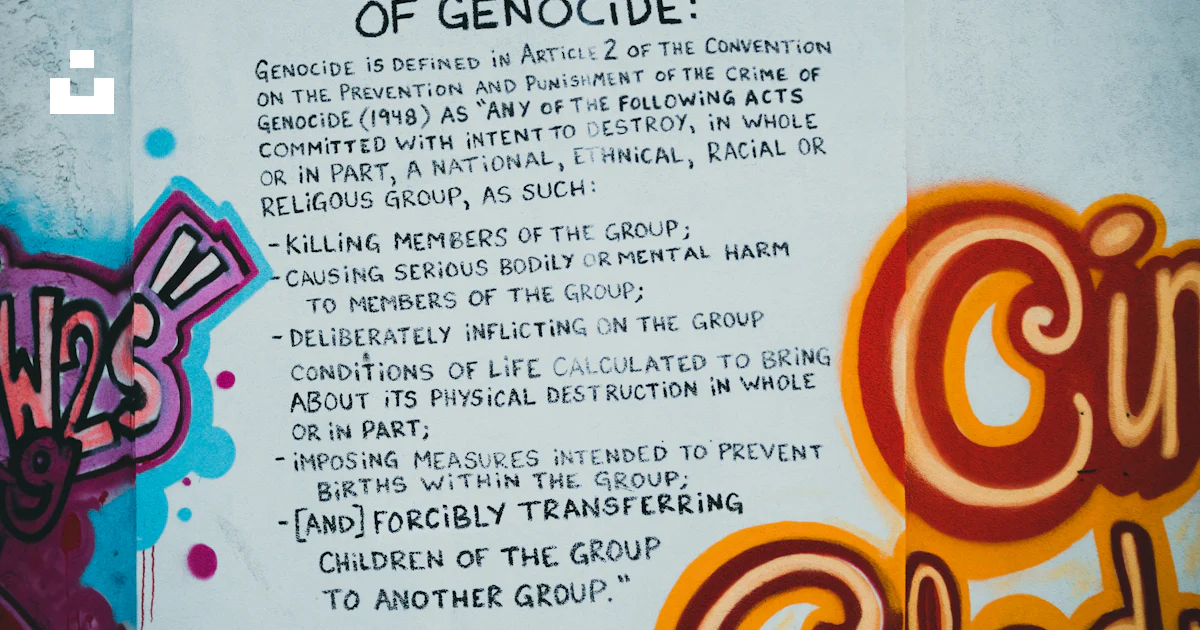 OF GENOCiDE:
GENOCiDE iS DEFiNED iN ARTiCLE 2 OF THE CONVENTiON
ON THE PREVENTiON AND PUNiSHMENT OF THE CRiME OF
GENOCiDE (1948) AS "ANY OF THE FOLLOWiNG ACTS
COMMITTED WiTH iNTENT TO DESTROY, iN WHOLE
OR iN PART, A NATiONAL, ETHNiCAL, RACiAL OR
RELiGOUS GROUP, AS SUCH:
- KiLLiNG MEMBERS OF THE GROUP;
- CAUSiNG SERiOUS BODiLY OR MENTAL HARM
TO MEMBERS OF THE GROUP;
- DELiBERATELY iNFLiCTiNG ON THE GROUP
CONDiTiONS OF LiFE CALCULATED TO BRiNG
ABOUT iTS PHYSiCAL DESTRUCTiON iN WHOLE
OR iN PART;
- iMPOSiNG MEASURES iNTENDED TO PREVENT
BiRTHS WiTHiN THE GROUP;
- [AND] FORCiBLY TRANSFERRiNG
CHiLDREN OF THE GROUP
TO ANOTHER GROUP."
W2S
9